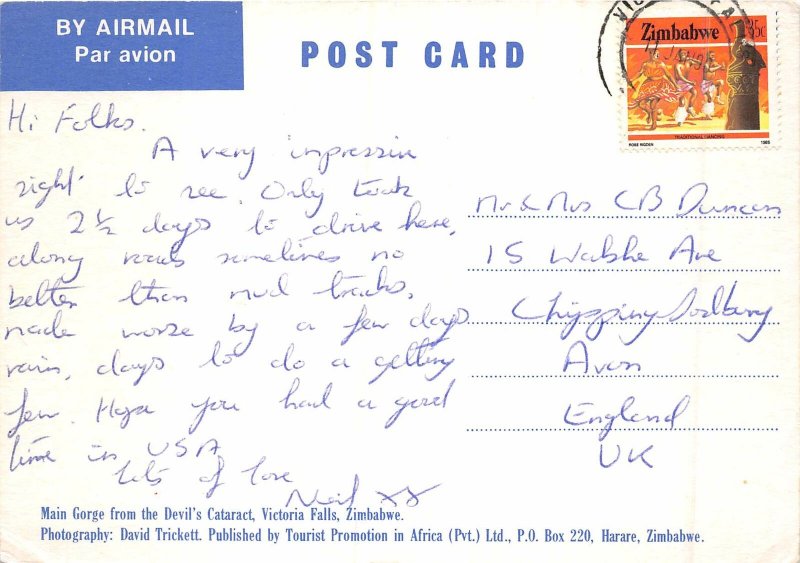 BY AIRMAIL
Par avion
POST CARD
VIC FAL
11 JAN
Zimbabwe
35c
TRADITIONAL DANCING
ROSE RIGDEN
1985
Hi Folks.
A very impressive
sight to see. Only took
us 2½ days to drive here,
along roads sometimes no
better than mud tracks,
made worse by a few days
rain, days to do a getting
few. Hope you had a good
time in USA
Lots of love
Neil xx
Mr & Mrs CB Duncan
15 Walshe Ave
Chipping Sodbury
Avon
England
UK
Main Gorge from the Devil's Cataract, Victoria Falls, Zimbabwe.
Photography: David Trickett. Published by Tourist Promotion in Africa (Pvt.) Ltd., P.O. Box 220, Harare, Zimbabwe.